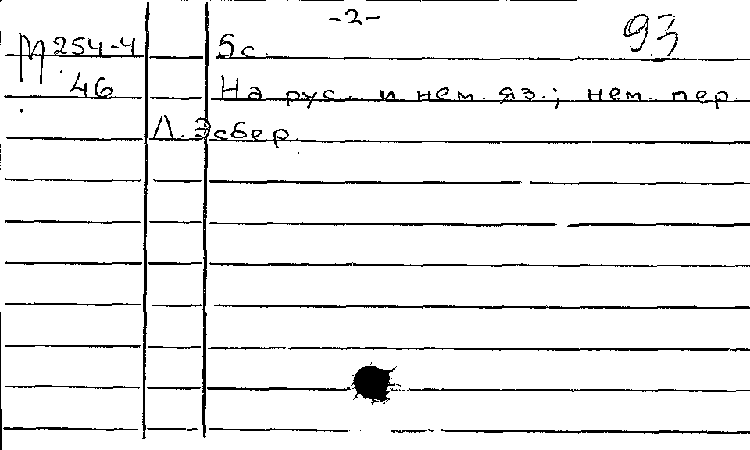 -2-
93
М 254-4 5 с.
46 На рус. и нем. яз.; нем. пер
Л. Эсбер.